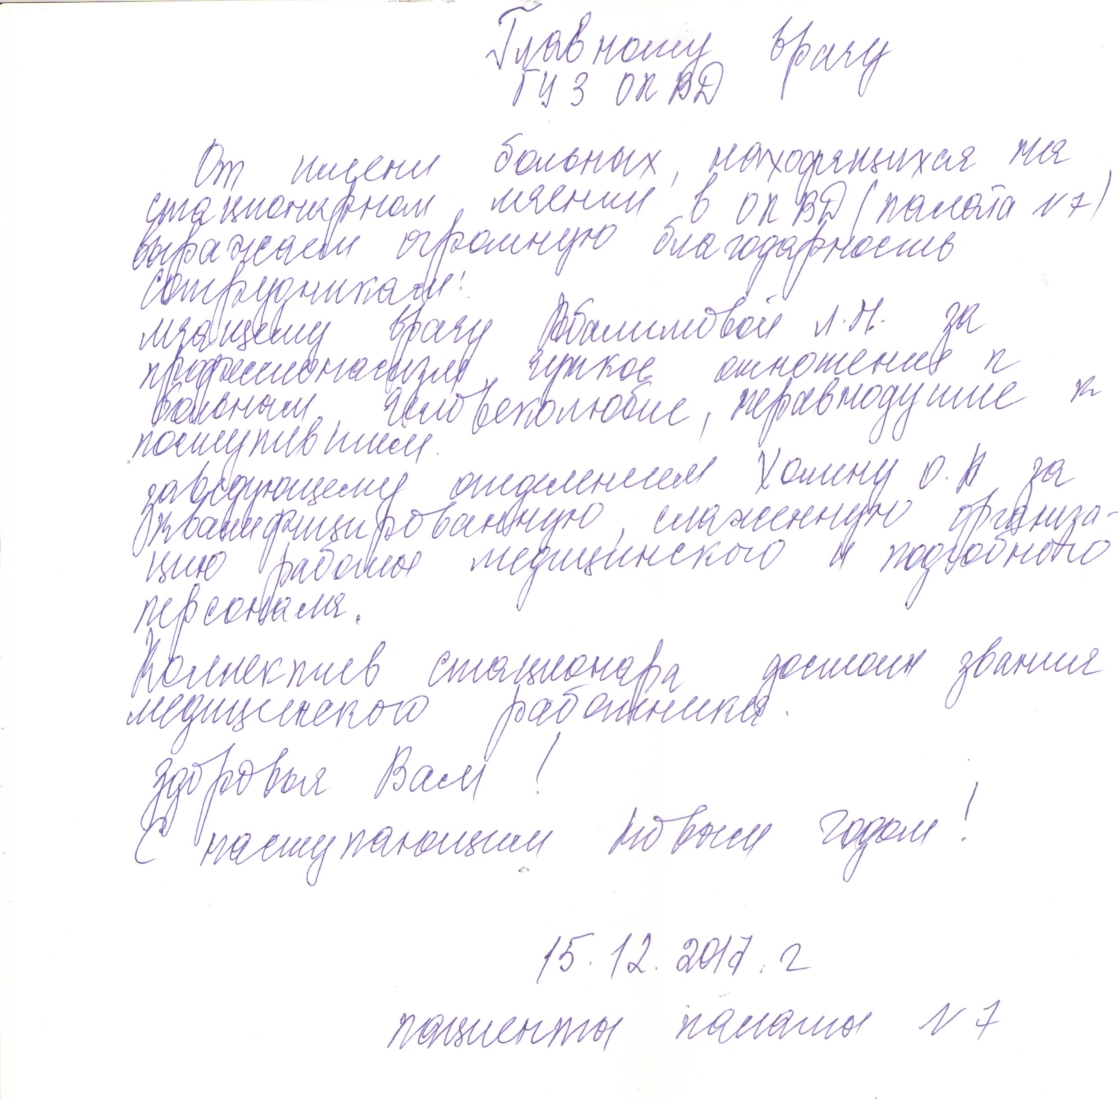 Главному врачу
ГУЗ ОКВД
От имени больных, находящихся на
стационарном лечении в ОКВД (палата N7)
выражаем огромную благодарность
сотрудникам:
лечащему врачу Абалимовой Л.Н. за
профессионализм, чуткое отношение к
больным, человеколюбие, неравнодушие к
поступившим.
заведующему отделением Холину О.А за
квалифицированную, слаженную организа-
цию работы медицинского и подсобного
персонала.
Коллектив стационара достоин звания
медицинского работника.
Здоровья Вам!
С наступающим Новым годом!
15.12.2017.г
пациенты палаты N7